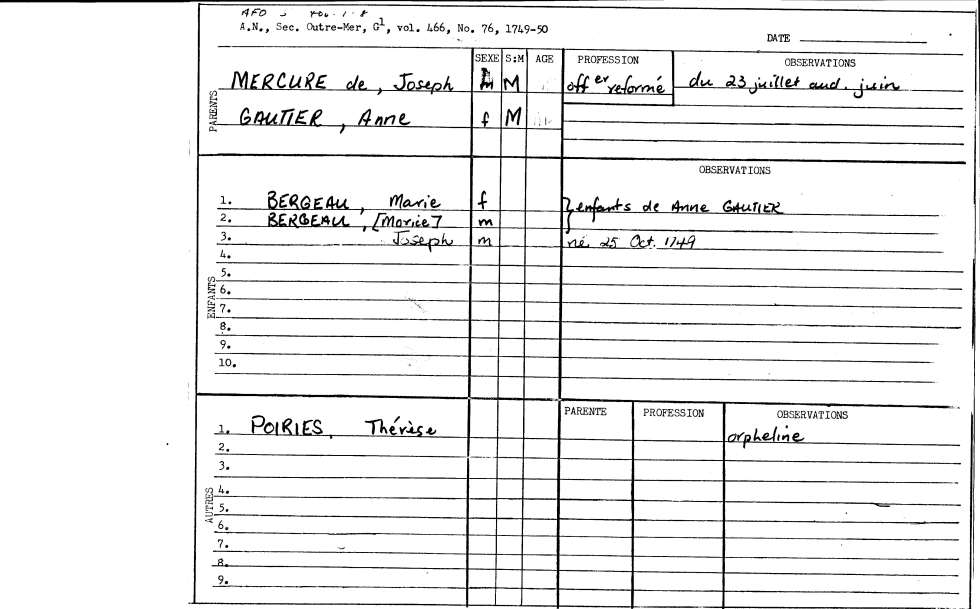 A.N., Sec. Outre-Mer, G1, vol. 466, No. 76, 1749-50
DATE
SEXE S:M AGE PROFESSION OBSERVATIONS
PARENTS
MERCURE de, Joseph m M offer reformé du 23 juillet aud. juin
GAUTIER, Anne f M
OBSERVATIONS
ENFANTS
1. BERGEAU, Marie f } enfants de Anne GAUTIER
2. BERGEAU, [Marie] m
3. Joseph m né 25 Oct. 1749
4.
5.
6.
7.
8.
9.
10.
PARENTE PROFESSION OBSERVATIONS
AUTRES
1. POIRIES, Thérèse orpheline
2.
3.
4.
5.
6.
7.
8.
9.